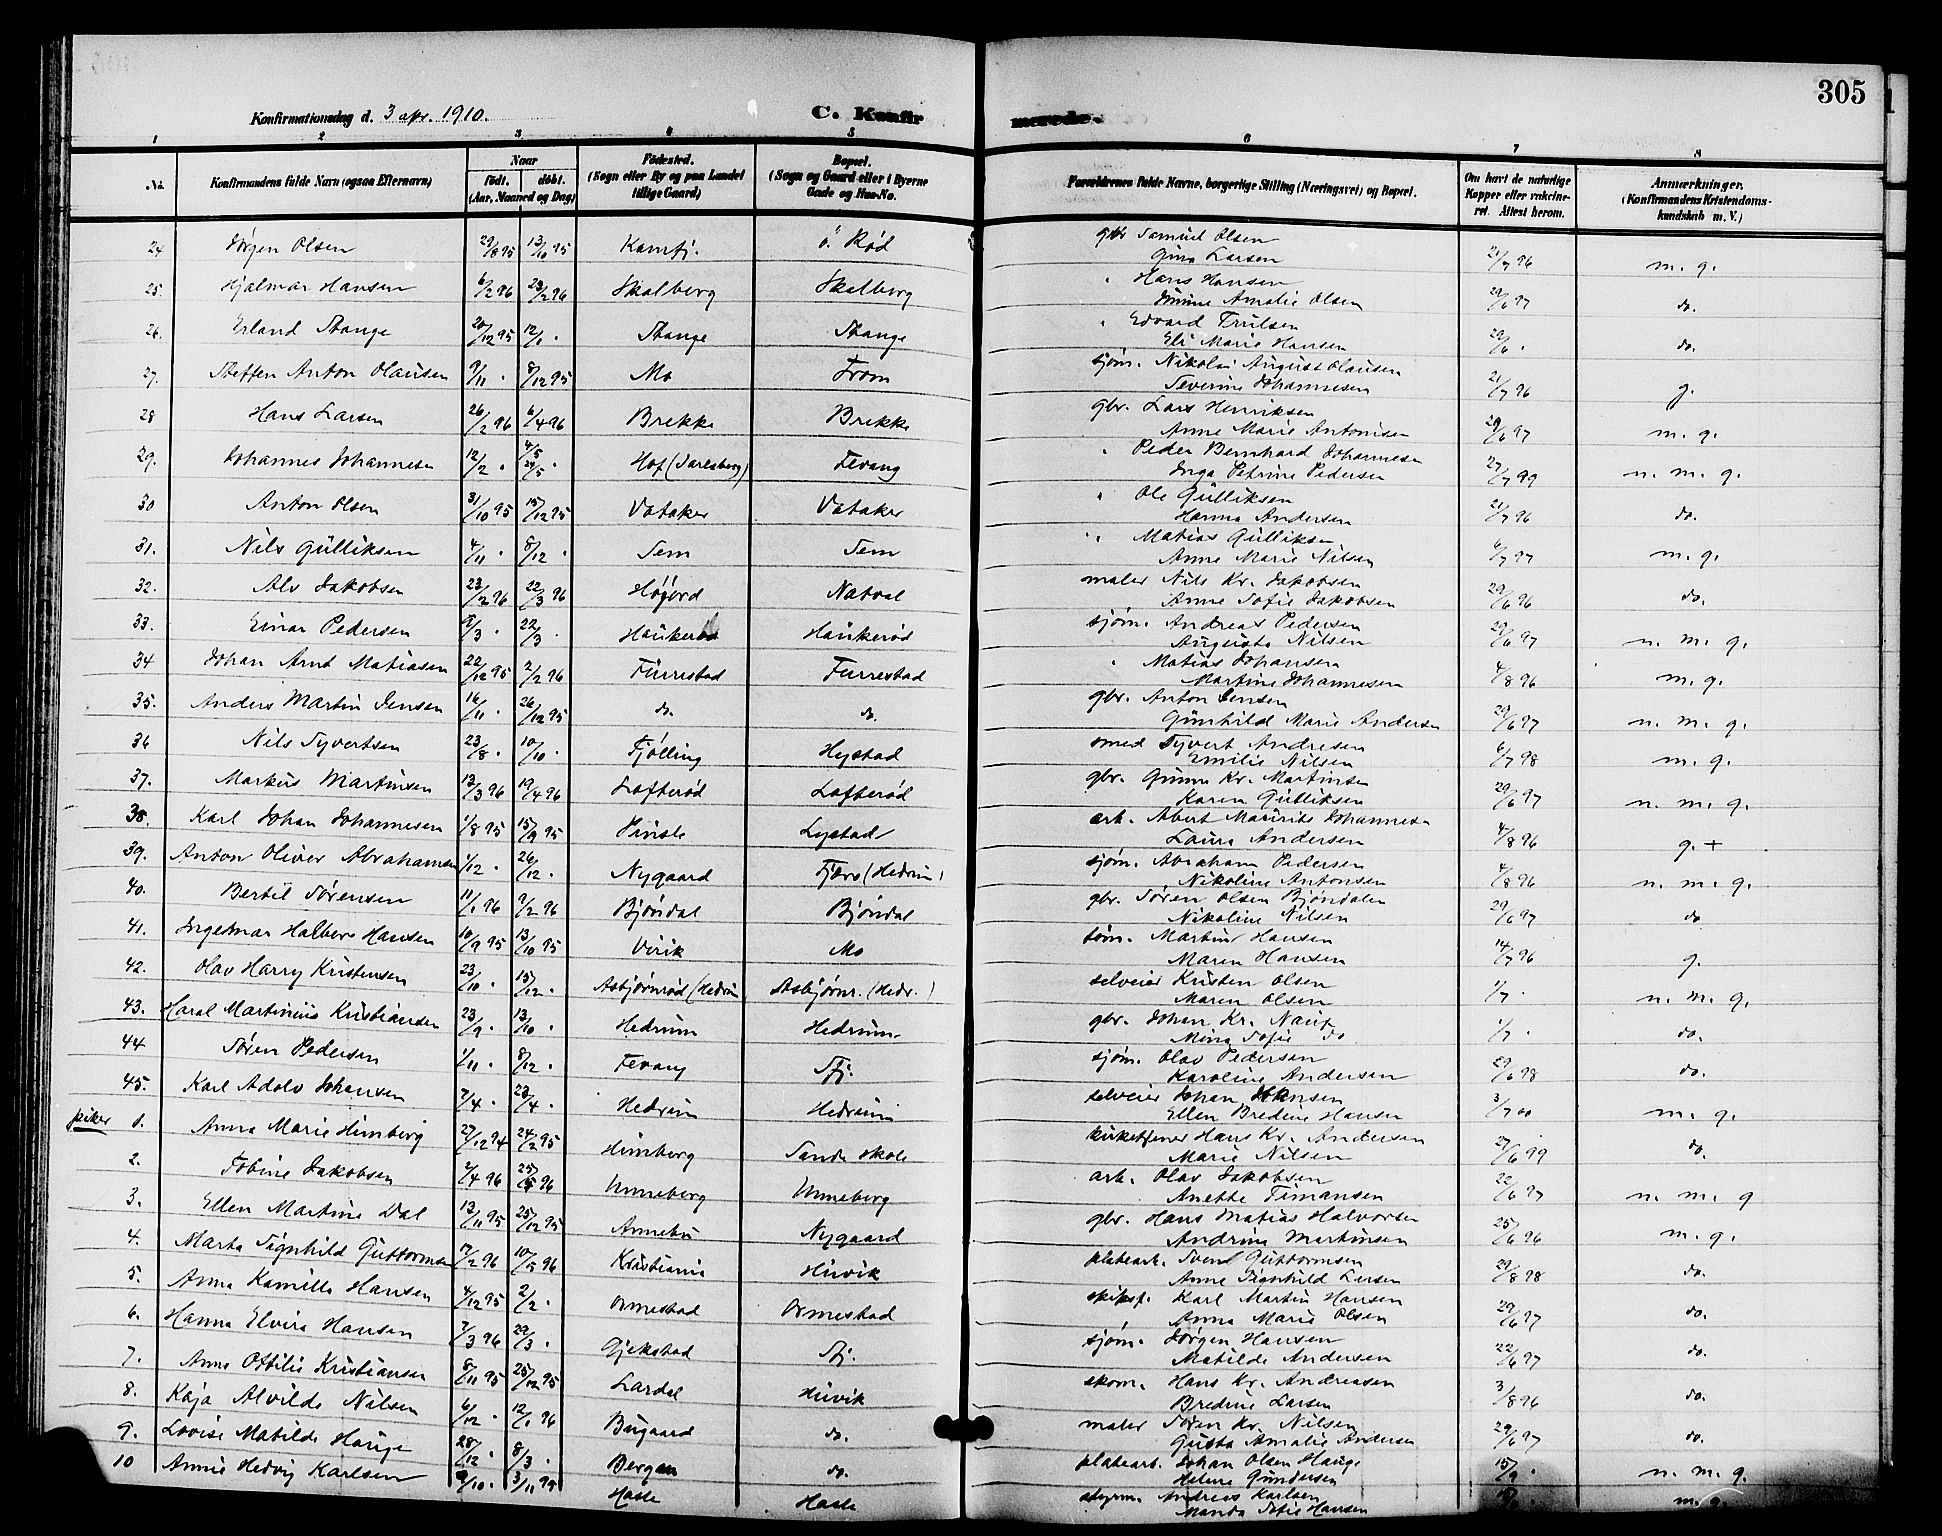 305
Konfirmationsdag d. 3 apr. 1910.
C. Konfirmerede.
1 2 3 4 5 6 7 8
No. Konfirmandens fulde Navn (ogsaa Efternavn) Naar født. døbt. (Aar, Maaned og Dag) Fødested. (Sogn eller By og paa Landet tillige Gaard) Bopæl. (Sogn og Gaard eller i Byerne Gade og Hus-No. Forældrenes fulde Navne, borgerlige Stilling (Næringsvei) og Bopæl. Om havt de naturlige Kopper eller vakcineret. Attest herom. Anmærkninger. (Konfirmandens Kristendomskundskab m. V.)
24 Jørgen Olsen 29/8 95 13/10 95 Kamfj. ö. Rød gbr Samuel Olsen
Gina Larsen 21/7 96 m. g.
25. Hjalmar Hansen 6/2 96 23/2 96 Skalberg Skalberg " Hans Hansen
Amalie Olsen 29/6 97 do.
26. Erland Stange 20/12 95 12/1 . Stange Stange " Edvard Trulsen
Eli Marie Hansen 29/6 . do.
27. Steffen Anton Olausen 9/11 . 8/12 95 Mo From sjøm. Nikolai August Olausen
Severine Johannesen 21/7 96 g.
28 Hans Larsen 26/2 96 6/4 96 Brekke Brekke gbr. Lars Henriksen
Anne Marie Antonisen 29/6 97 m. g.
29. Johannes Johannesen 12/2 . 4/5 24/5 . Hof (Jarlsberg) Fevang " Peder Bernhard Johannesen
Inga Petrine Pedersen 27/7 99 n. m. g.
30 Anton Olsen 31/10 95 15/12 95 Vataker Vataker " Ole Gulliksen
Hanna Andersen 21/7 96 do.
31. Nils Gulliksen 4/11 . 8/12 . Sem Sem " Matias Gulliksen
Anne Marie Nilsen 6/7 97 m. g.
32. Alv Jakobsen 23/2 96 22/3 96 Høgerd Natval maler Nils Kr. Jakobsen
Anne Sofie Jakobsen 29/6 96 do.
33. Einar Pedersen 9/3 . 22/3 . Haukerød Haukerød sjøm. Andreas Pedersen
Augusta Nilsen 29/6 97 n. m. g.
34 Johan Arnt Matiasen 22/12 95 2/2 96 Furrestad Furrestad " Matias Johansen
Martine Johannesen 4/8 96 m. g.
35. Anders Martin Jensen 16/11 . 26/12 95 do. do. gbr. Anton Jensen
Gunhild Marie Andersen 29/6 97 n. m. g.
36 Nils Syvertsen 23/8 . 10/10 . Tjølling Hystad smed Syvert Andresen
Emilie Nilsen 6/7 98 m. g.
37. Markus Martinsen 13/3 96 19/4 96 Lofterød Lofterød gbr. Gunne Kr. Martinsen
Karen Gulliksen 29/6 97 n. m. g.
38. Karl Johan Johannesen 1/8 95 15/9 95 Pinsle Lystad arb. Abert Maurits Johannesen
Laura Andersen 4/8 96 g. +
39. Anton Oliver Abrahamsen 1/12 . 26/12 . Nygaard Fjære (Hedrum) sjøm. Abraham Pedersen
Nikoline Antonsen 4/8 96 n. m. g.
40. Bertil Sørensen 11/1 96 9/2 96 Bjøndal Bjøndal gbr. Søren Olsen Bjøndalen
Nikoline Nilsen 29/6 97 do
41. Ingemar Halberg Hansen 10/9 95 13/10 95 Virik Mo tøm. Martin Hansen
Maren Hansen 14/7 96 g.
42. Olav Harry Kristensen 23/10 . 15/12 . Asbjørnrød (Hedrum Asbjørnr. (Hedr.) selveier Kristen Olsen
Maren Olsen 1/7 . n. m. g.
43. Haral Martinius Kristiansen 23/9 . 13/10 . Hedrum Hedrum gbr. Johan Kr. Nauf
Mina Sofie do 1/7 . do.
44 Søren Pedersen 1/11 . 8/12 . Fevang Sfj. sjøm. Olav Pedersen
Karoline Andersen 29/6 98 do.
45. Karl Adolv Johansen 7/4 . 28/4 . Hedrum Hedrum selveier Johan Johansen
Ellen Bredine Hansen 3/7 00 m. g.
piker 1. Anna Marie Himberg 27/12 94 24/2 95 Himberg Sande skole kirketjener Hans Kr. Andersen
Marie Nilsen 27/6 99 do.
2. Tobine Jakobsen 4/4 96 25/5 96 Unneberg Unneberg arb. Olav Jakobsen
Anette Timansen 22/6 97 n. m. g
3. Ellen Martine Dal 13/11 95 25/12 95 Annebu Nygaard gbr. Hans Matias Halvorsen
Andrine Martinsen 25/6 96 m. g.
4. Marta Signhild Guttormsen 17/2 96 10/5 96 Kristiania Huvik platearb. Svend Guttormsen
Anne Signhild Larsen 29/8 98 do.
5. Anna Kamilla Hansen 4/12 95 2/2 . Ormestad Ormestad skibsf. Karl Martin Hansen
Anna Marie Olsen 29/6 97 do.
6. Hanna Elvira Hansen 7/3 96 22/3 . Gjekstad Sfj. sjøm. Jørgen Hansen
Matilde Andersen 22/6 97 do.
7. Anne Ottilie Kristiansen 8/11 95 25/12 95 Lardal Huvik skom. Hans Kr. Andreasen
Bredine Larsen 3/8 96 do.
8. Kaja Alvilde Nilsen 6/12 . 12/1 96 Bugaard do. maler Søren Kr. Nilsen
Gusta Amalie Andersen 29/6 97 do.
9. Lovise Matilde Hauge 28/12 . 8/3 . Bergen do. platearb. Johan Olsen Hauge
Helene Gundersen 15/9 . n. m. g.
10 Annie Hedvig Karlsen 9/10 . 3/11 95 Hasle Hasle styrm. Andreas Karlsen
Manda Sofie Hansen m. g.